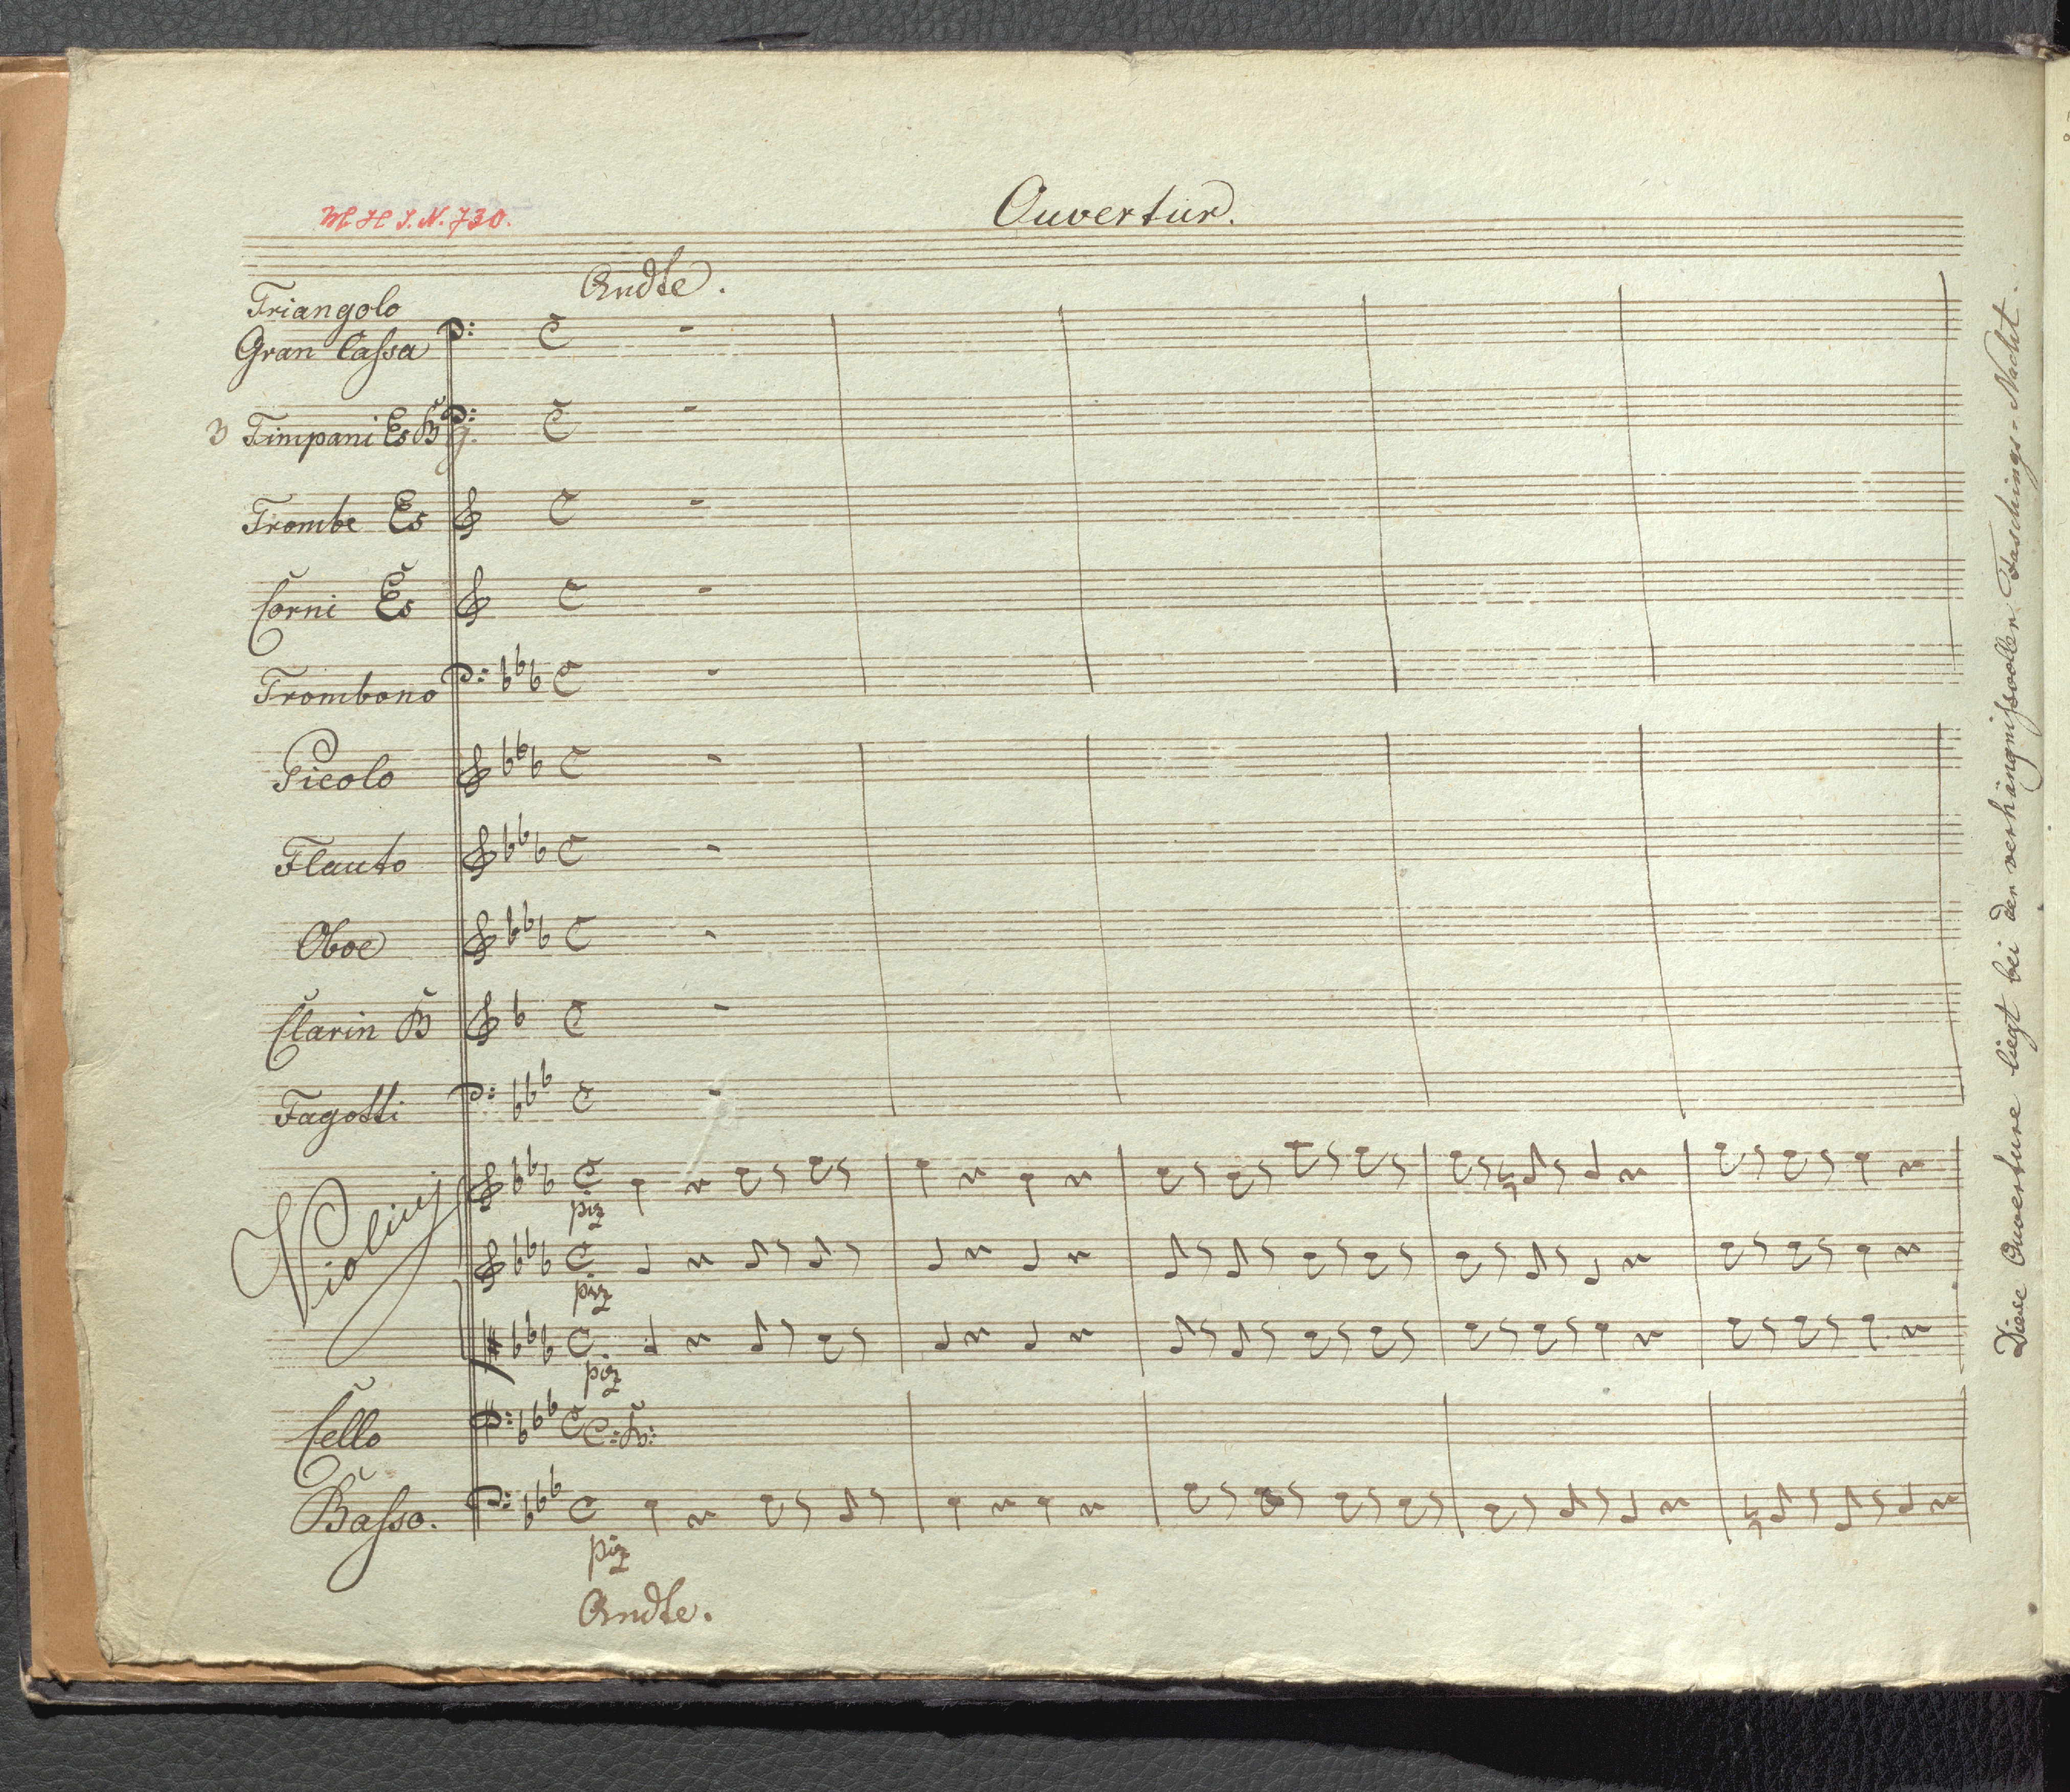 Ouvertur.
M H I. N. 730.
Andte.
Triangolo
Gran Cassa
3 Timpani Es B g.
Trombe Es
Corni Es
Trombono
Picolo
Flauto
Oboe
Clarin B
Fagotti
Violinj
piz
piz
piz
Cello
C: B:
Basso.
piz
Andte.
Diese Ouverture liegt bei der verhängnißvollen Faschings-Nacht.